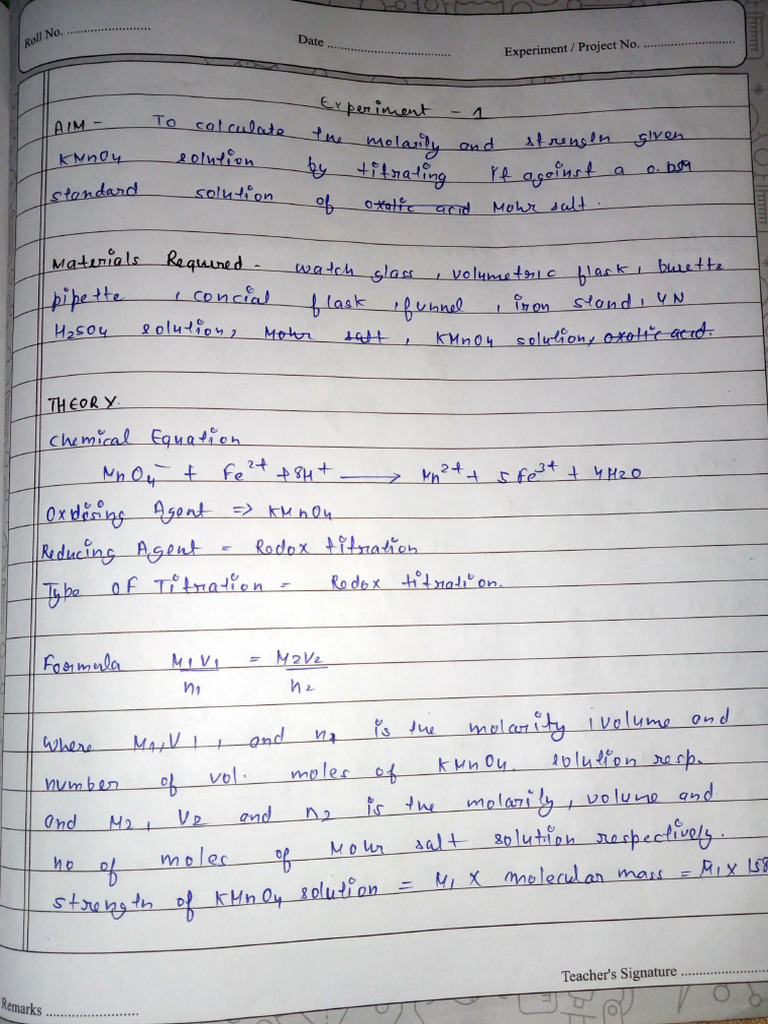 Roll No. ........................
Date ...................................
Experiment / Project No. ..........................
Experiment - 1
AIM - To calculate the molarity and strength given
KMnO4 solution by titrating it against a
standard solution of oxalic acid Mohr salt.
Materials Required - watch glass, volumetric flask, burette
pipette, concial flask, funnel, iron stand, 4N
H2SO4 solution, Mohr salt, KMnO4 solution, oxalic acid.
THEORY.
Chemical Equation
MnO4⁻ + Fe²⁺ + 8H⁺ ⟶ Mn²⁺ + 5Fe³⁺ + 4H2O
Oxidising Agent => KMnO4
Reducing Agent = Redox titration
Type OF Titration = Redox titration.
Formula M1V1 = M2V2
n1 n2
where M1, V1, and n1 is the molarity, volume and
number of vol. moles of KMnO4 solution resp.
and M2, V2 and n2 is the molarity, volume and
no of moles of Mohr salt solution respectively.
strength of KMnO4 solution = M1 X molecular mass = M1 X 158
Teacher's Signature ........................
Remarks ........................